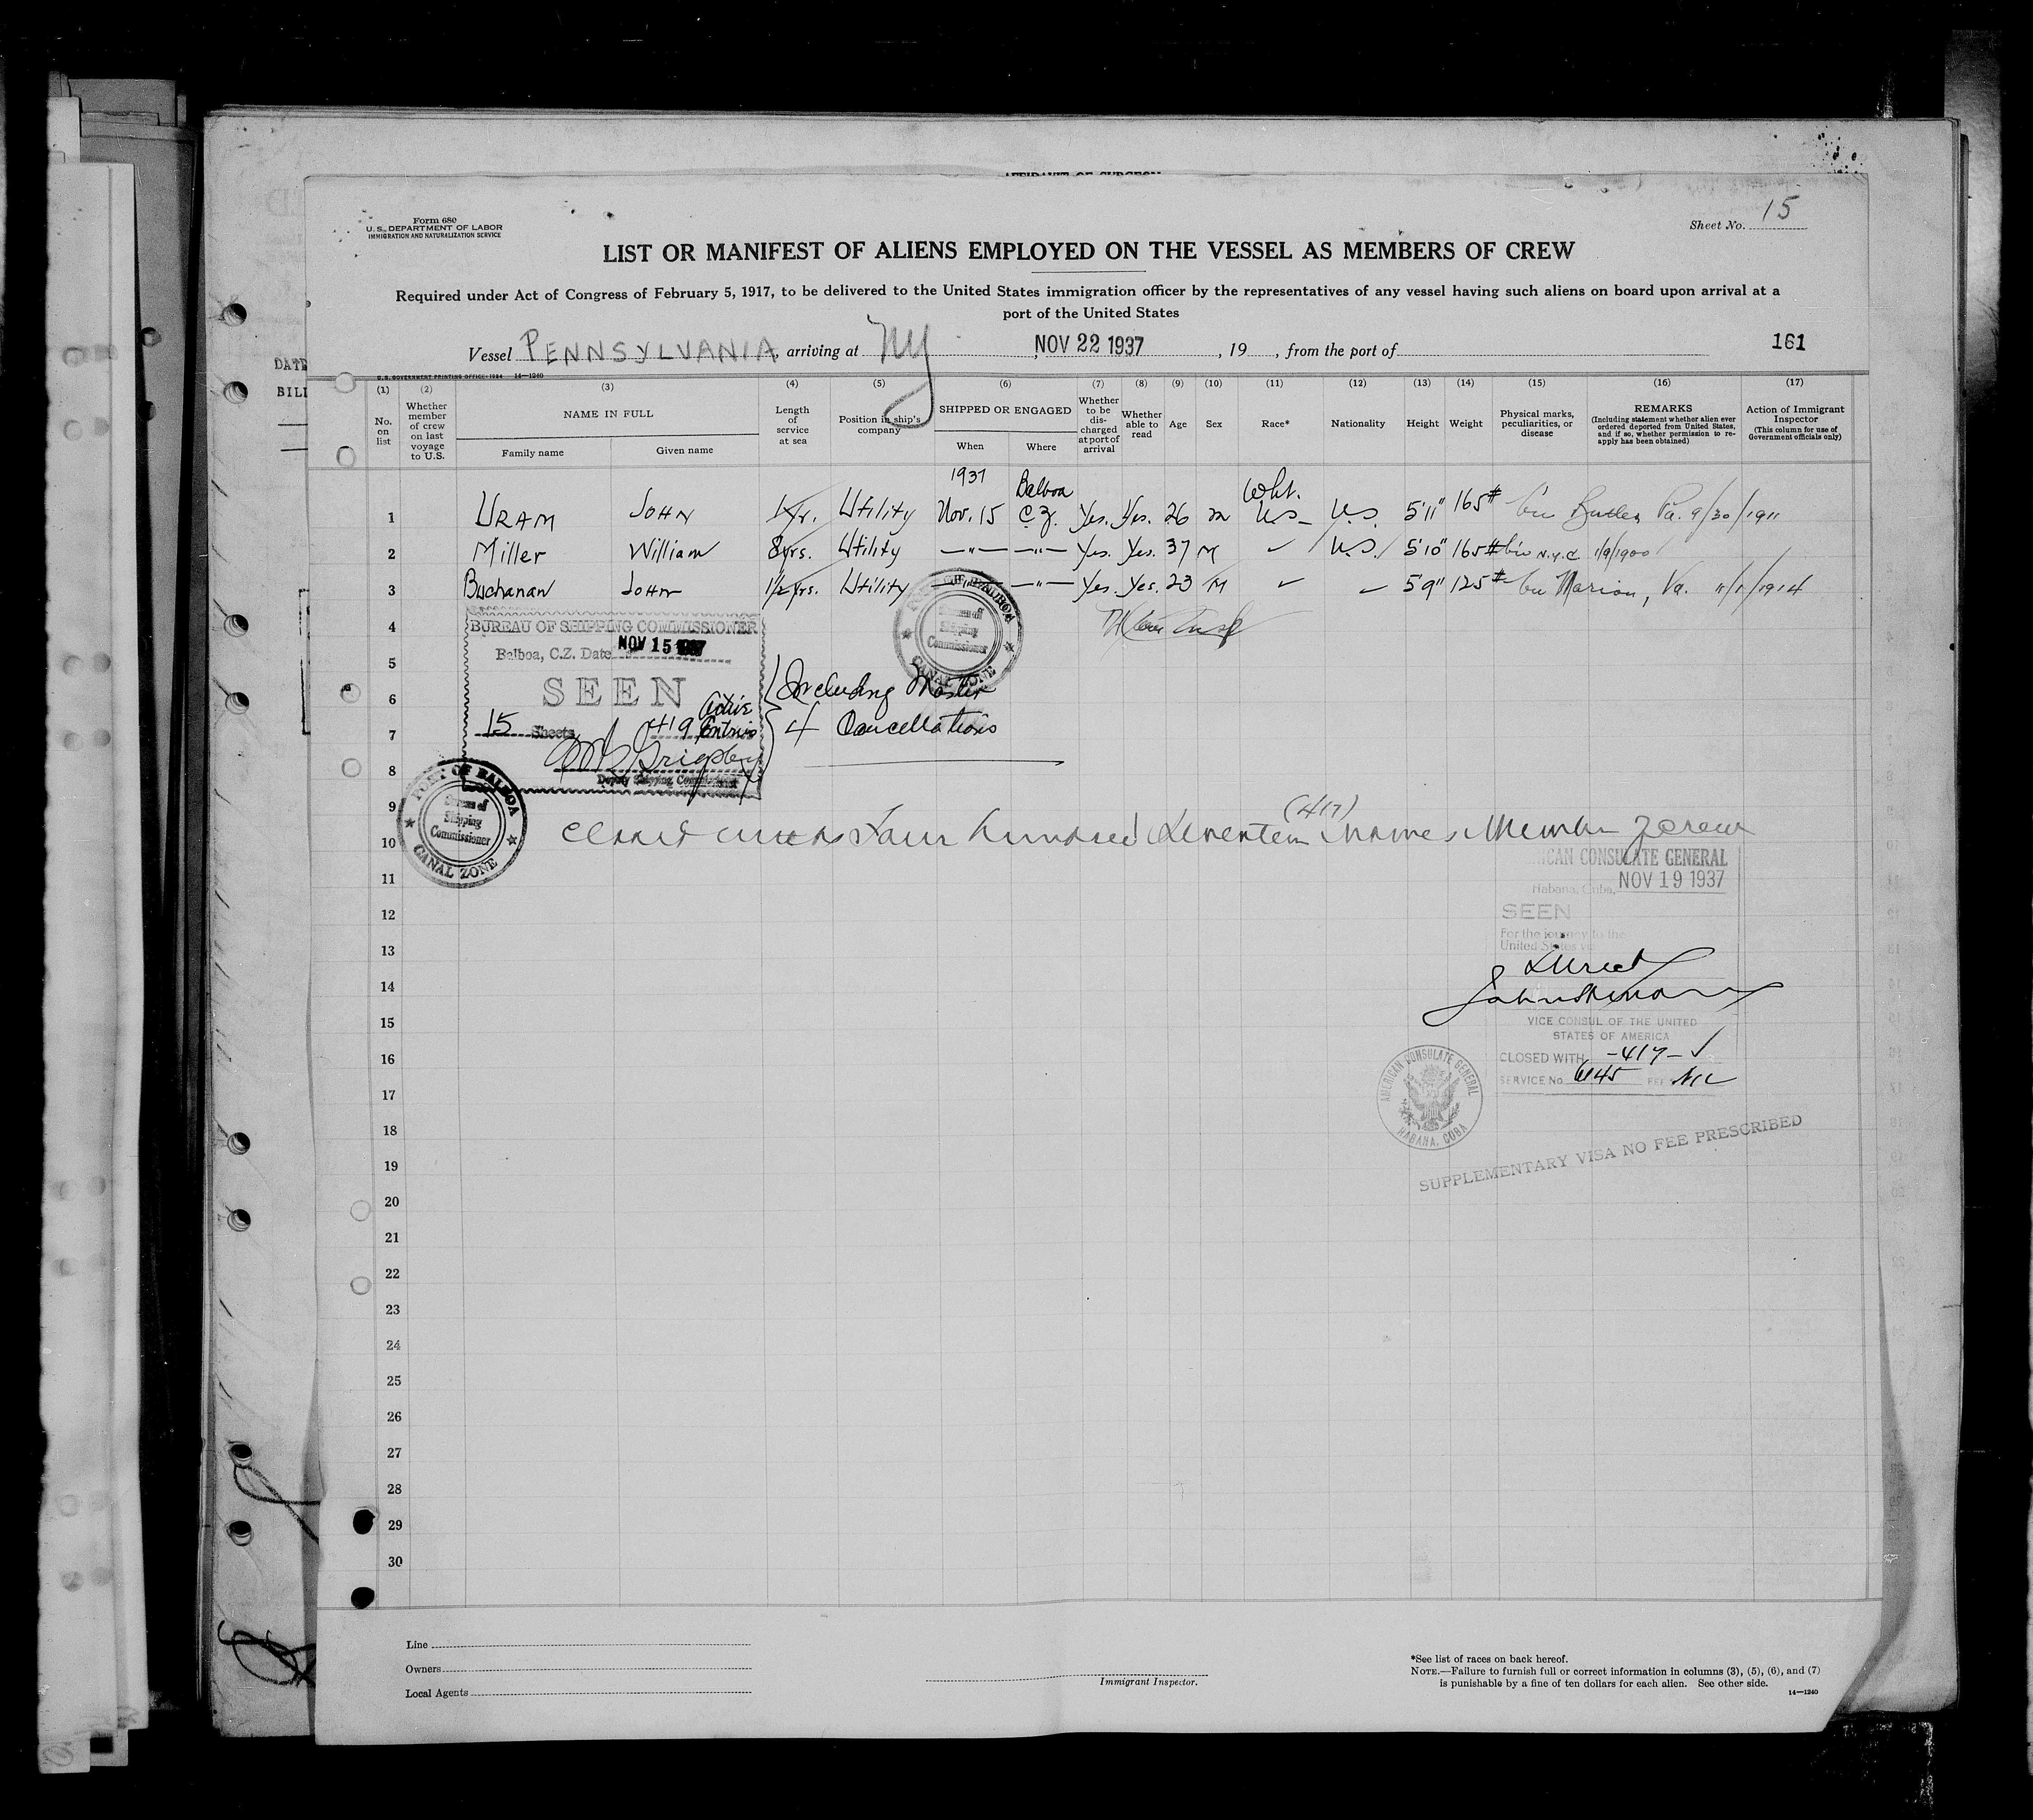 AFFIDAVIT OF SURGEON
Form 680
U.S. DEPARTMENT OF LABOR
IMMIGRATION AND NATURALIZATION SERVICE
Sheet No. 15
LIST OR MANIFEST OF ALIENS EMPLOYED ON THE VESSEL AS MEMBERS OF CREW
Required under Act of Congress of February 5, 1917, to be delivered to the United States immigration officer by the representatives of any vessel having such aliens on board upon arrival at a
port of the United States
Vessel PENNSYLVANIA, arriving at NY, NOV 22 1937, 19 , from the port of 161
DATE
BILL
U.S. GOVERNMENT PRINTING OFFICE: 1934 14—1240
(1) (2) (3) (4) (5) (6) (7) (8) (9) (10) (11) (12) (13) (14) (15) (16) (17)
No. on list
Whether member of crew on last voyage to U.S.
NAME IN FULL
Family name
Given name
Length of service at sea
Position in ship's company
SHIPPED OR ENGAGED
When
Where
Whether to be discharged at port of arrival
Whether able to read
Age
Sex
Race*
Nationality
Height
Weight
Physical marks, peculiarities, or disease
REMARKS
(Including statement whether alien ever ordered deported from United States, and if so, whether permission to reapply has been obtained)
Action of Immigrant Inspector
(This column for use of Government officials only)
1937 Balboa Wht.
1 URAM JOHN 1yr. Utility Nov. 15 C.Z. Yes. Yes. 26 M U.S. U.S. 5'11" 165# Butler, Pa. 9/30/1911
2 Miller William 8yrs. Utility —"— —"— Yes. Yes. 37 M ✓ U.S. 5'10" 165# N.Y.C. 1/9/1900
3 Buchanan JOHN 1½yrs. Utility —"— —"— Yes. Yes. 23 M ✓ 5'9" 125# Marion, Va. 11/1/1914
4
BUREAU OF SHIPPING COMMISSIONER
Balboa, C.Z. Date NOV 15 1937
5
SEEN
6 Including Master
15 Sheets 419 Active Entries
7 4 Cancellations
Grigsby
Deputy Shipping Commissioner
8
PORT OF BALBOA
Bureau of
Shipping
Commissioner
CANAL ZONE
PORT OF BALBOA
Bureau of
Shipping
Commissioner
CANAL ZONE
9 (417)
10 Four hundred Seventeen Names Member crew
AMERICAN CONSULATE GENERAL
11 Habana, Cuba, NOV 19 1937
12 SEEN
For the journey to the
United States via
13
Direct
14
15
VICE CONSUL OF THE UNITED
STATES OF AMERICA
16 CLOSED WITH -417- ✓
SERVICE No. 6145 FEE NIL
17
AMERICAN CONSULATE GENERAL
HABANA, CUBA
18
SUPPLEMENTARY VISA NO FEE PRESCRIBED
19
20
21
22
23
24
25
26
27
28
29
30
Line
Owners
Local Agents
Immigrant Inspector.
*See list of races on back hereof.
NOTE.—Failure to furnish full or correct information in columns (3), (5), (6), and (7)
is punishable by a fine of ten dollars for each alien. See other side.
14—1240